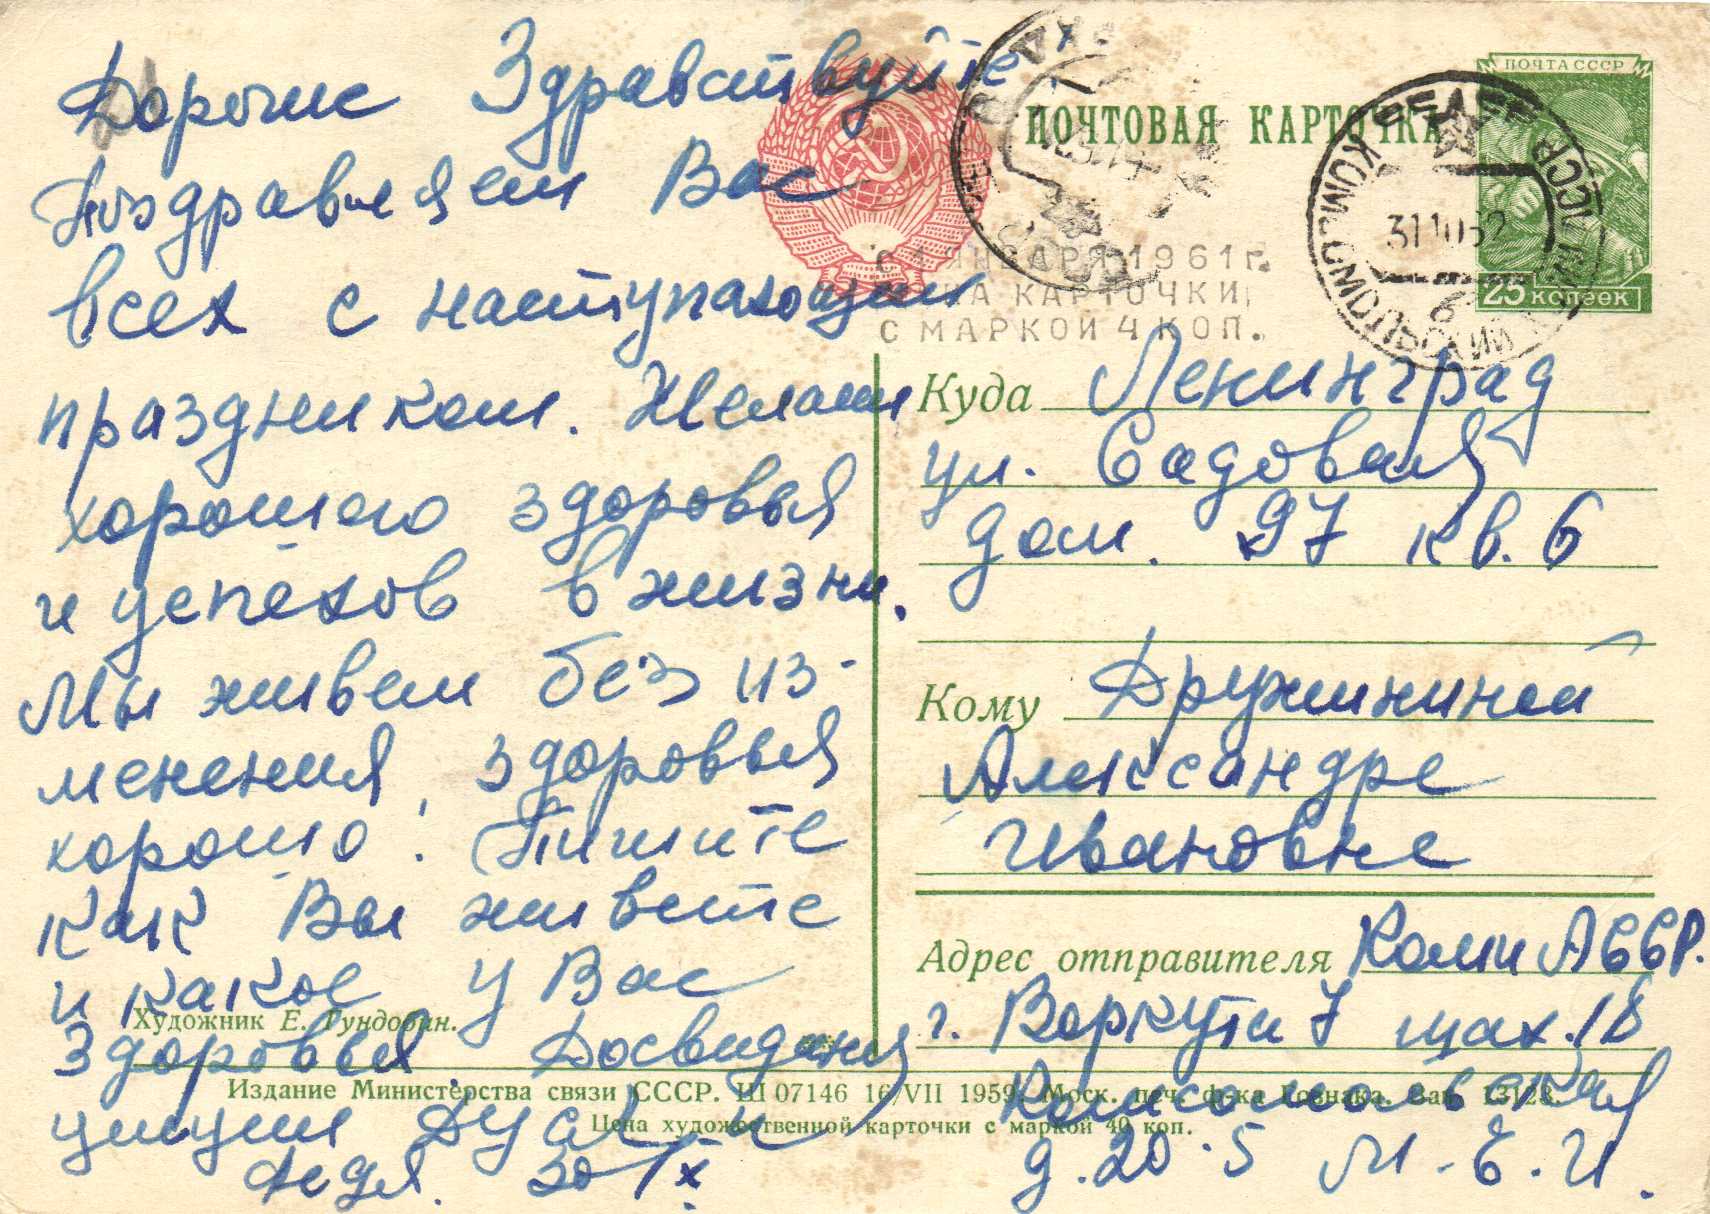 Дорогие Здравствуйте
Поздравляем Вас
всех с наступающим
праздником. Желаем
хорошего здоровья
и успехов в жизни.
Мы живем без из-
менения, здоровья
хорошо! Пишите
как Вы живете
и какое у Вас
здоровья. Досвидания
Дуся и
Федя. 30/X
ПОЧТОВАЯ КАРТОЧКА
ПОЧТА СССР
25 КОПЕЕК
31 10 62
КОМСОМОЛЬСКИЙ
С 1 ЯНВАРЯ 1961 г.
ЦЕНА КАРТОЧКИ
С МАРКОЙ 4 КОП.
Куда Ленинград
ул. Садовая
дом. 97 кв. 6
Кому Дружининой
Александре
Ивановне
Адрес отправителя Коми АССР.
г. Воркута 7 шах. 18
Комсомольская
д. 20-5 М. Е. И.
Художник Е. Гундобин.
Издание Министерства связи СССР. Ш 07146 16/VII 1959. Моск. печ. ф-ка Гознака. Зак. 13128.
Цена художественной карточки с маркой 40 коп.